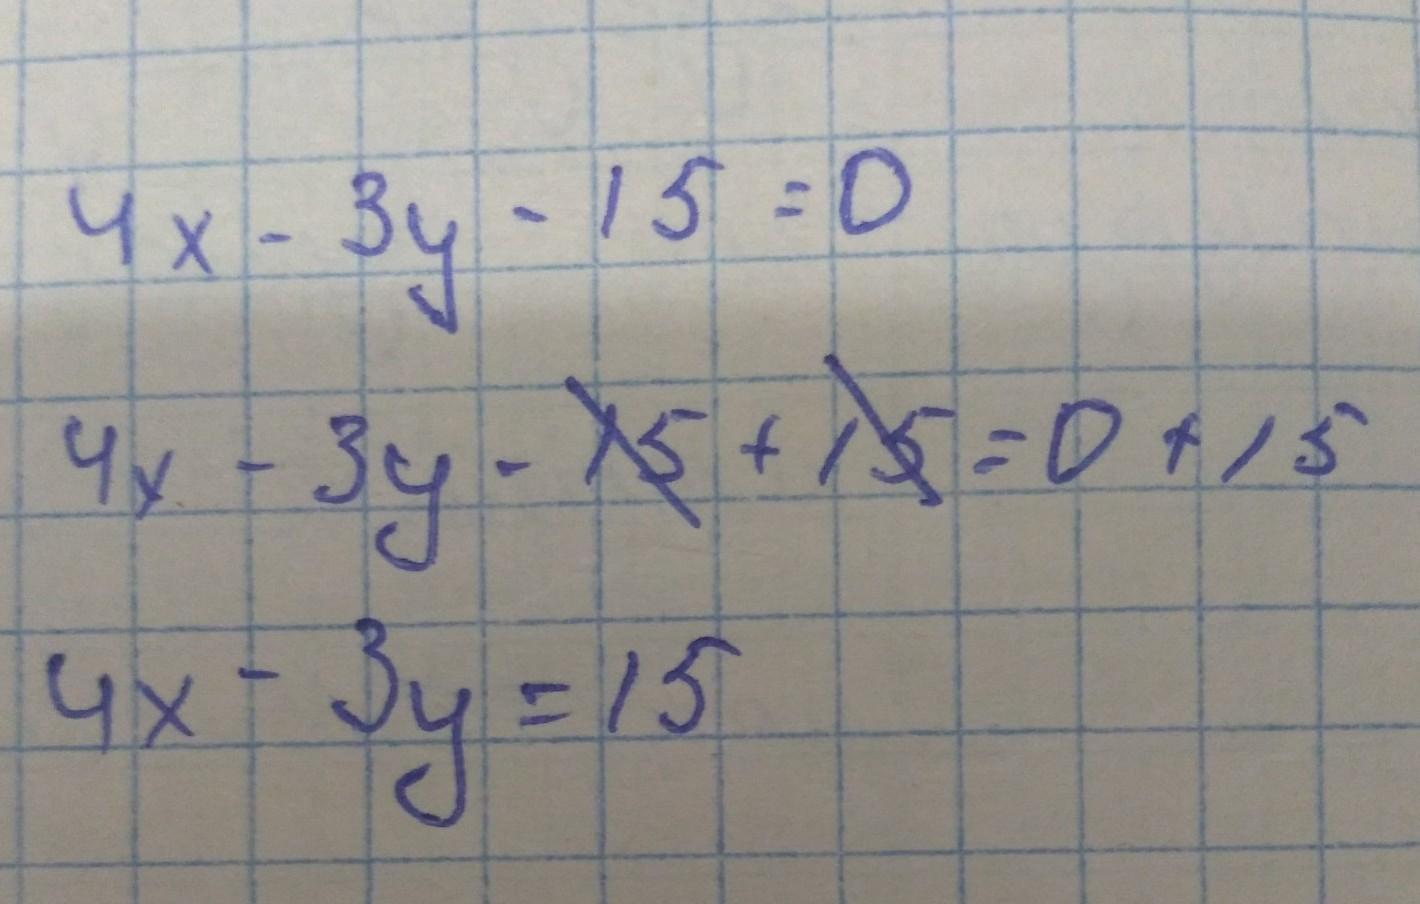 4x - 3y - 15 = 0
4x - 3y - 15 + 15 = 0 + 15
4x - 3y = 15